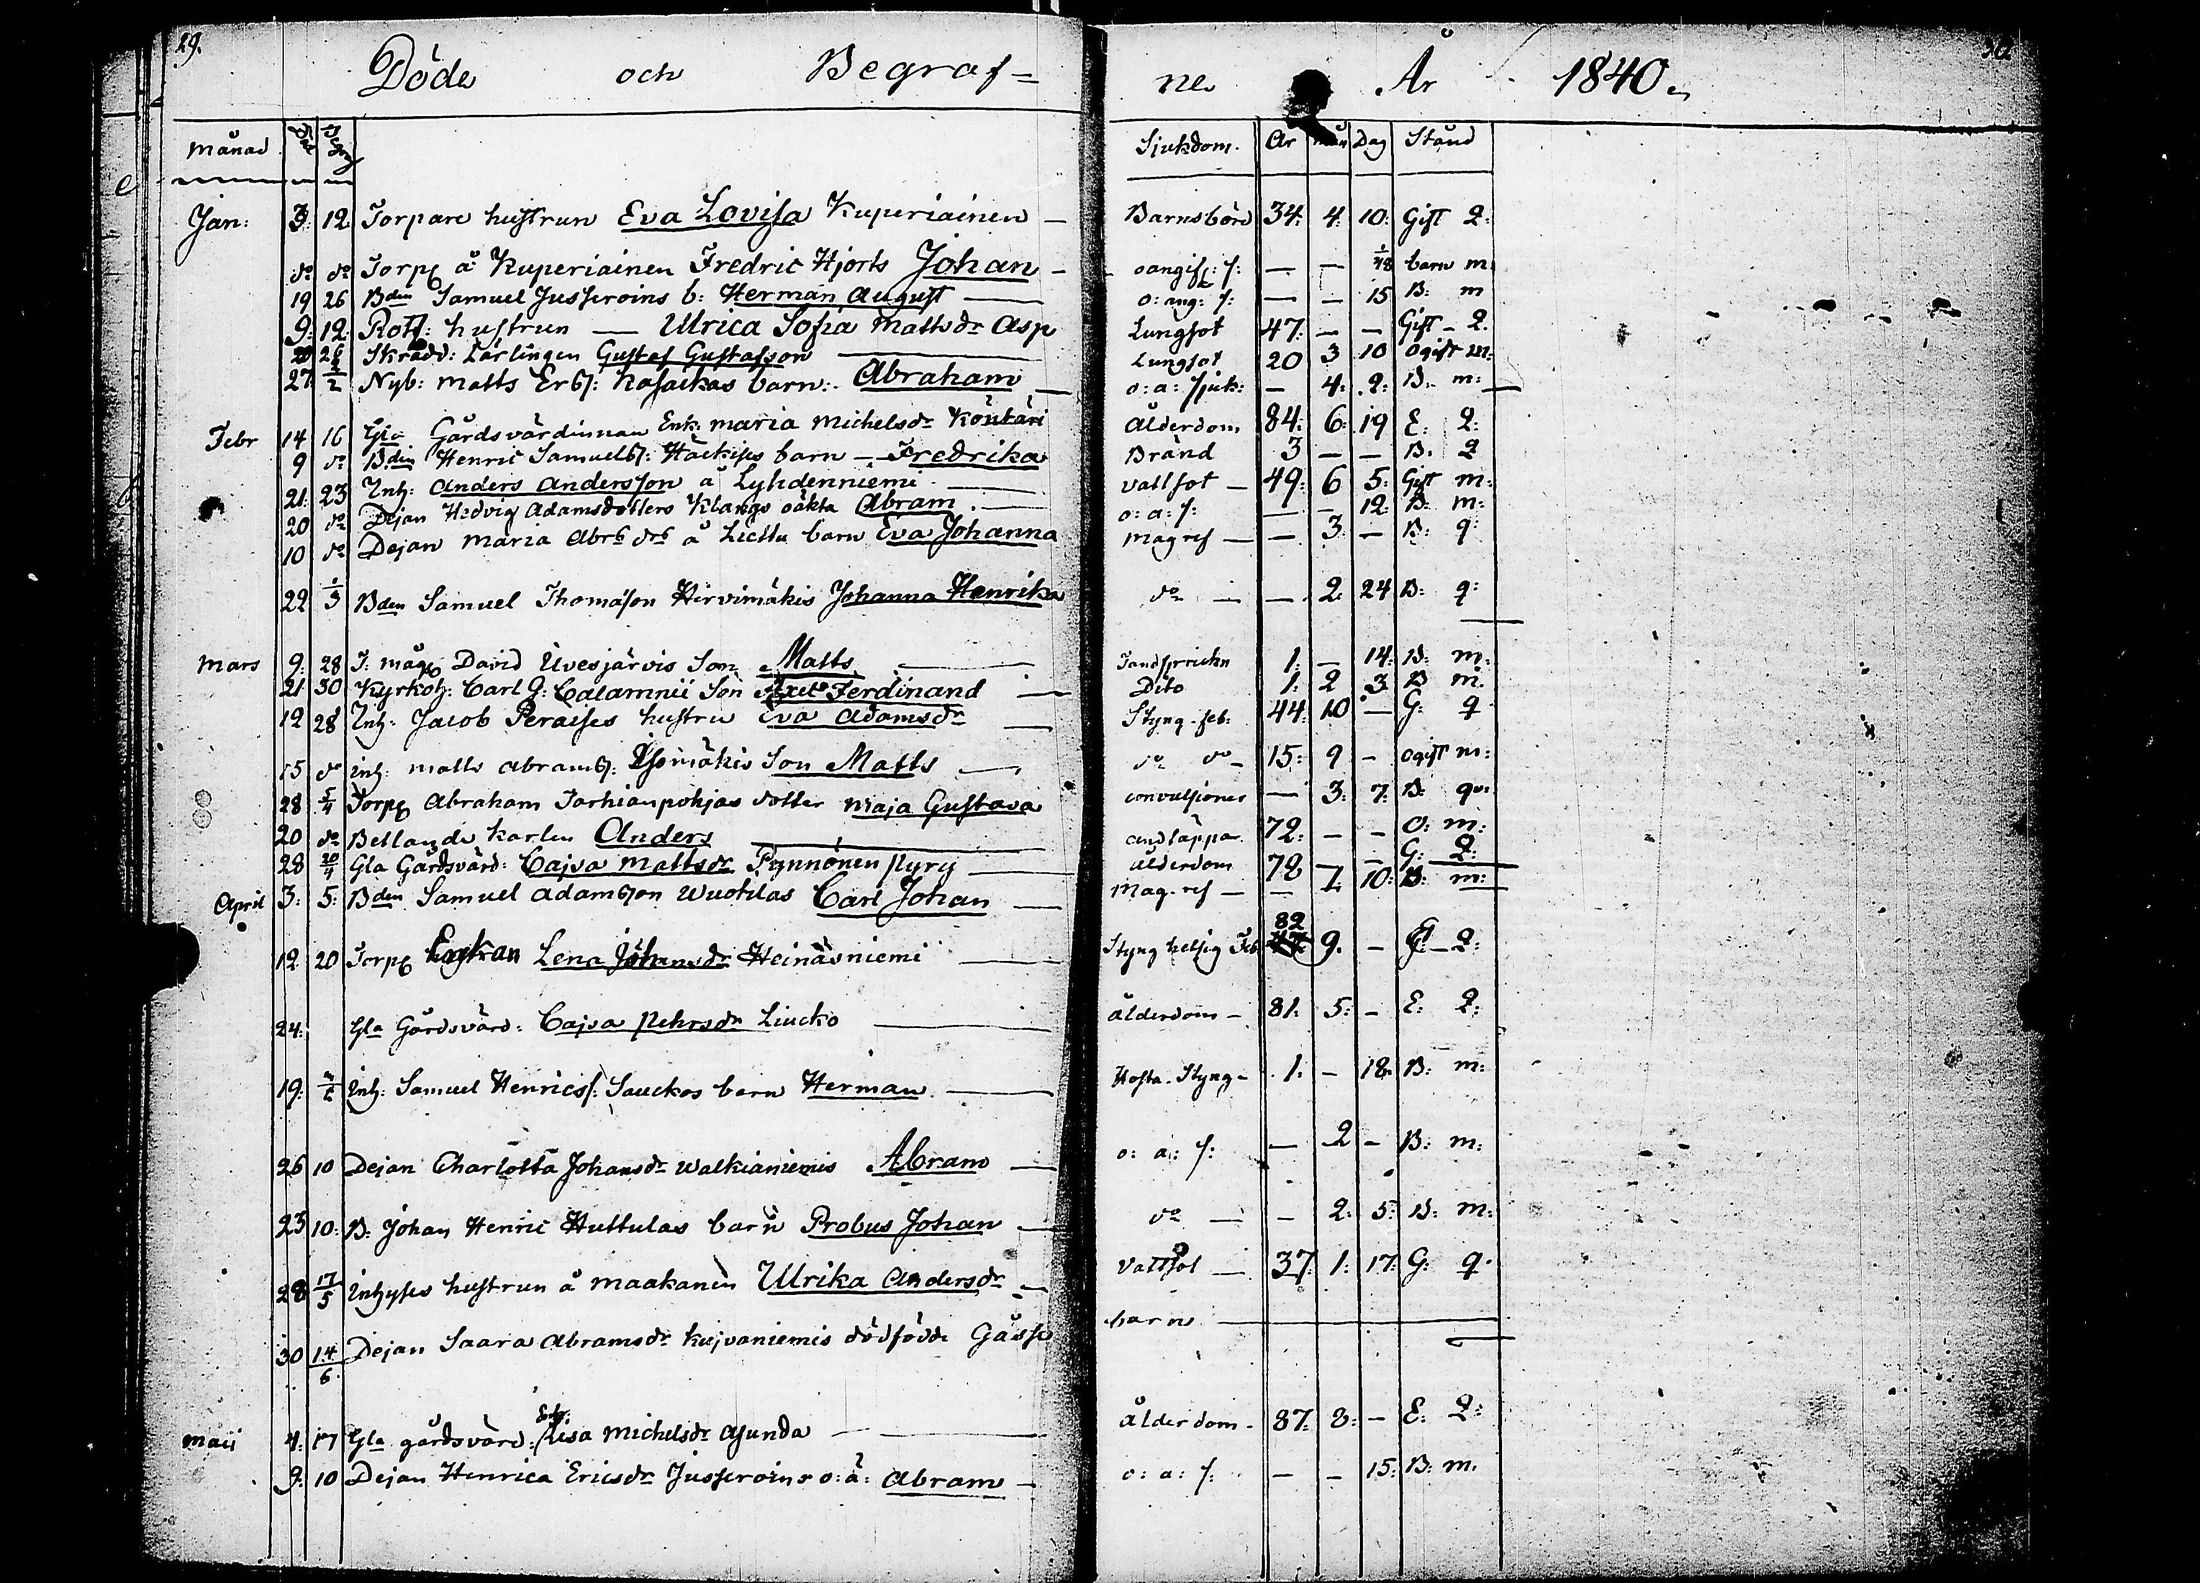 29. 30.
Döde och Begraf= ne År 1840.
månad Död Begr Sjukdom. År mån Dag Stånd
Jan: 3: 12 Torpare hustrun Eva Lovisa Kuperiainen — Barnsbörd 34: 4: 10: Gift q:
do do Torp å Kuperiainen Fredric Hjorts Johan — oangif: s: — — barn m
19 26 Bden Samuel Jusseroins b: Herman August — o: ang: s: — — 15 B: m
9: 12 Rotf: hustrun — Ulrica Sofia Mattsdr Asp Lungsot 47: — — Gift - q.
20 26 Skrädd: Lärlingen Gustaf Gustafsson — Lungsot 20 3 10 ogift m:
27 2/2 Nyb: Matts Ers: barn: Abraham — o: a: sjuk: — 4: 2: B: m:
Febr 14 16 Gla Gårdsvärdinnan Enk: Maria Michelsdr Köntäri Ålderdom 84: 6: 19 E: q:
9 do Bden Henric Samuels: Häckises barn — Fredrika Bränd 3 — — B. q
21: 23 Inh: Anders Andersson å Lyhdenniemi — Vattsot — 49: 6 5: Gift m:
20 do Dejan Hedvig Adamsdotters Klangs oäkta Abram. — o: a: s: — — 12: B: m:
10 do Dejan Maria Abrs drs å barn Eva Johanna magref — — 3: — B: q:
22 1/3 Bden Samuel Thomasson Hirvimäkis Johanna Henrika do — — 2: 24 B: q:
Mars 9: 28 T: måg David Uvesjärvis Son Matts — Tandsprickn 1: — 14: B: m:
21 30 Kyrkoh: Carl G: Calamnii Son Axel Ferdinand — Dito 1: 2 3: B m:
12 28 Inh: Jacob Peraises hustru Eva Adamsdr — Styng-feb: 44: 10 — G: q
15 do inh: Matts Abrams: Isomäkis Son Matts — do do 15: 9 — ogift m:
28 5/4 Torp Abraham Tarhianpohjas dotter Maja Gustava convulsioner — 3: 7: B: q:
20 do Betlande karlen Anders — andtäppa. 72: — — O: m:
28 20/4 Gla Gårdsvärd: Cajsa Mattsdr Pynnönen Pyry — ålderdom 72 — — G: q:
April 3: 5: Bden Samuel Adamsson Wuotilas Carl Johan — Mag-ref — — 1: 10: B: m:
12: 20 Torp Enkan Lena Johansdr Heinäsniemi — Styng hetsig Feb 82 9. — q:
24: Gla Gårdsvärd: Cajsa Pehrsdr Liucko — ålderdom — 81: 5: — E: q:
19: Inh: Samuel Henrics: Sauckos barn Herman — Hosta. Styng — 1: — 18: B: m:
26 10 Dejan Charlotta Johansdr Walkianiemis Abram — o: a: s: — 2 — B: m:
23 10: B: Johan Henric Huttulas barn Probus Johan — do — — 2: 5: B: m:
28 17/5 inhyses hustrun å Maakanen Ulrika Andersdr — Vattsot — 37: 1: 17: G: q:
30 14/6 Dejan Saara Abramsdr Kujvaniemis dödfödde Gosse barn —
Maii 4: 17 Gla gårdsvärd: Enk: Lisa Michelsdr Ajunda — ålderdom — 87: 8: — E: q:
9: 10 Dejan Henrica Ericsdr Jusseroins o: ä: Abram — o: a: s: — — 15: B: m.